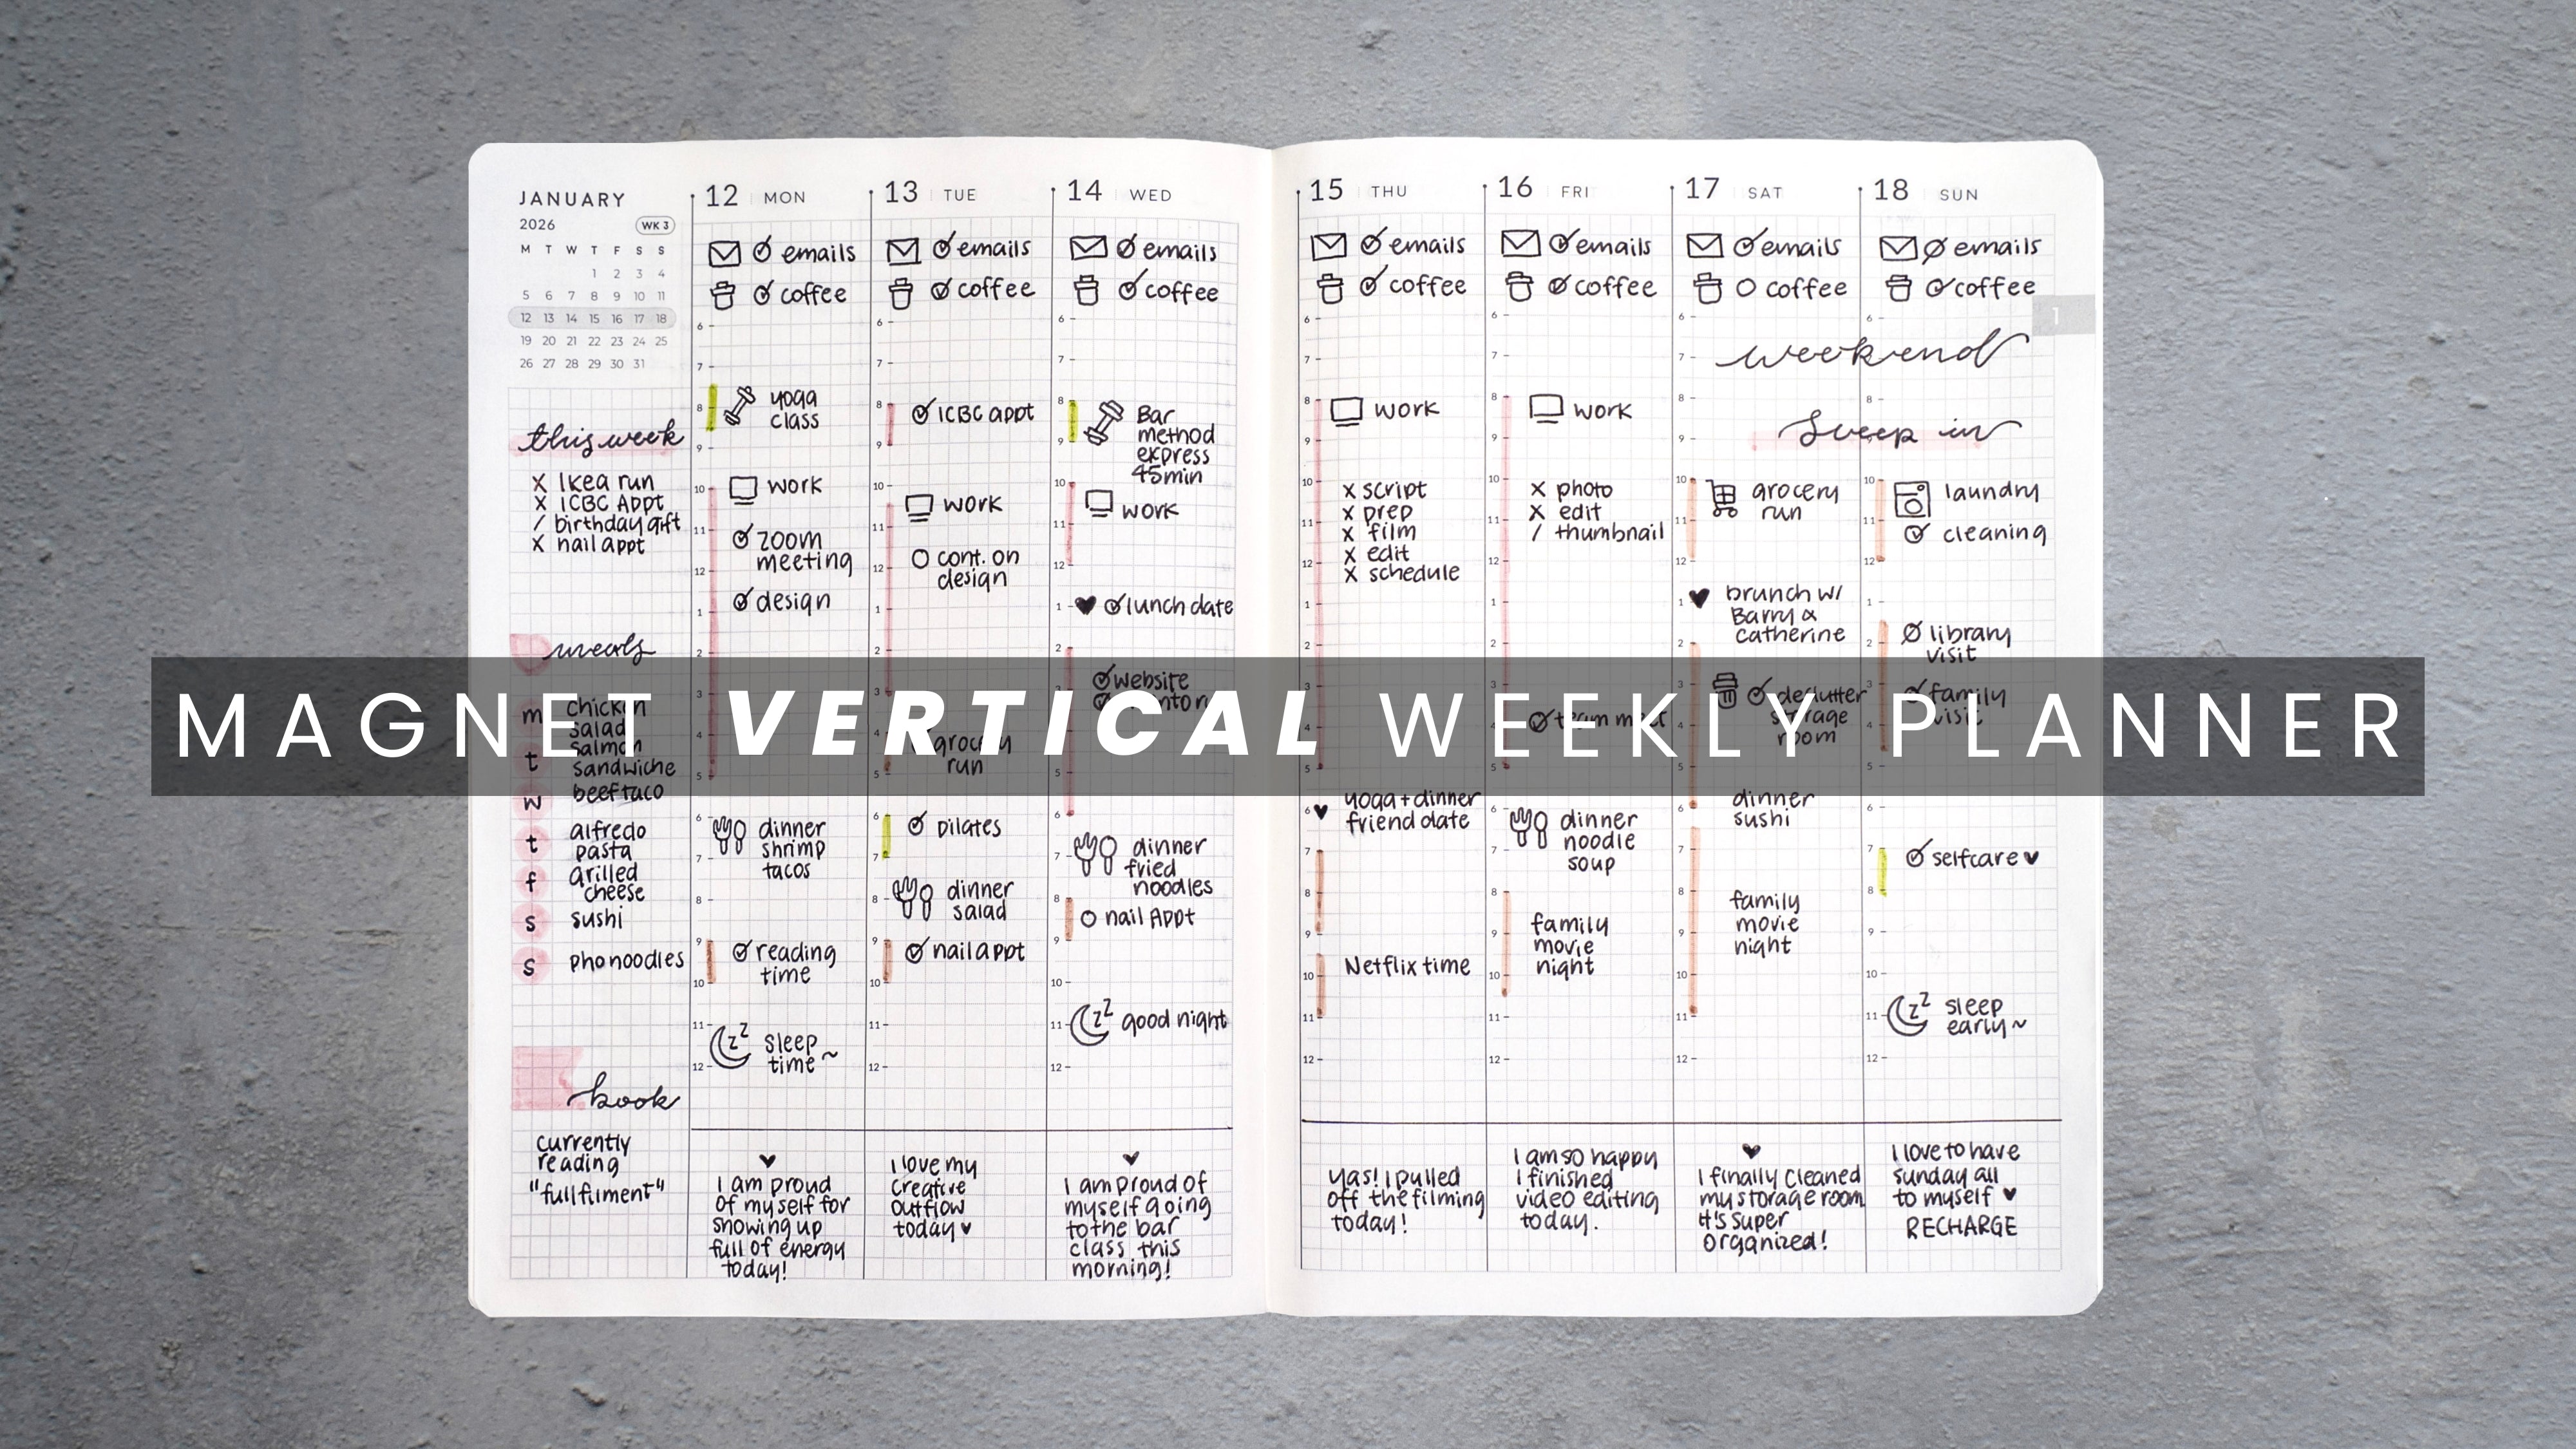 JANUARY
2026 WK 3
M T W T F S S
1 2 3 4
5 6 7 8 9 10 11
12 13 14 15 16 17 18
19 20 21 22 23 24 25
26 27 28 29 30 31
this week
X Ikea run
X ICBC Appt
/ birthday gift
X nail appt
meals
m chicken
salad
t salmon
sandwiche
w beef taco
t alfredo
pasta
f grilled
cheese
s sushi
s pho noodles
book
currently
reading
"fullfilment"
12 MON
emails
coffee
6
7
8
9
10
11
12
1
2
3
4
5
6
7
8
9
10
11
12
yoga
class
work
zoom
meeting
design
dinner
shrimp
tacos
reading
time
zz
sleep
time~
I am proud
of myself for
showing up
full of energy
today!
13 TUE
emails
coffee
6
7
8
9
10
11
12
1
2
3
4
5
6
7
8
9
10
11
12
ICBC appt
work
cont. on
design
grocery
run
pilates
dinner
salad
nail appt
I love my
creative
outflow
today ♥
14 WED
emails
coffee
6
7
8
9
10
11
12
1
2
5
6
7
8
9
10
11
12
Bar
method
express
45min
work
♥ lunch date
website
dinner
fried
noodles
nail Appt
zz good night
I am proud of
myself going
to the bar
class this
morning!
15 THU
emails
coffee
6
7
8
9
10
11
12
1
2
3
4
5
6
7
8
9
10
11
12
work
X script
X prep
X film
X edit
X schedule
♥ yoga + dinner
friend date
Netflix time
Yas! I pulled
off the filming
today!
16 FRI
emails
coffee
6
7
8
9
10
11
12
1
2
3
4
5
6
7
8
9
10
11
12
work
X photo
X edit
/ thumbnail
team
dinner
noodle
soup
family
movie
night
I am so happy
I finished
video editing
today.
17 SAT
emails
coffee
6
7
8
9
10
11
12
1
2
3
4
5
6
7
8
9
10
11
12
weekend
Sleep in
grocery
run
♥ brunch w/
Barry &
Catherine
declutter
storage
room
dinner
sushi
family
movie
night
I finally cleaned
my storage room
it's super
organized!
18 SUN
emails
coffee
1
6
8
9
10
11
12
1
2
3
4
6
7
8
9
10
11
12
laundry
cleaning
library
visit
family
visit
selfcare ♥
zz sleep
early~
I love to have
sunday all
to myself ♥
RECHARGE
MAGNET VERTICAL WEEKLY PLANNER